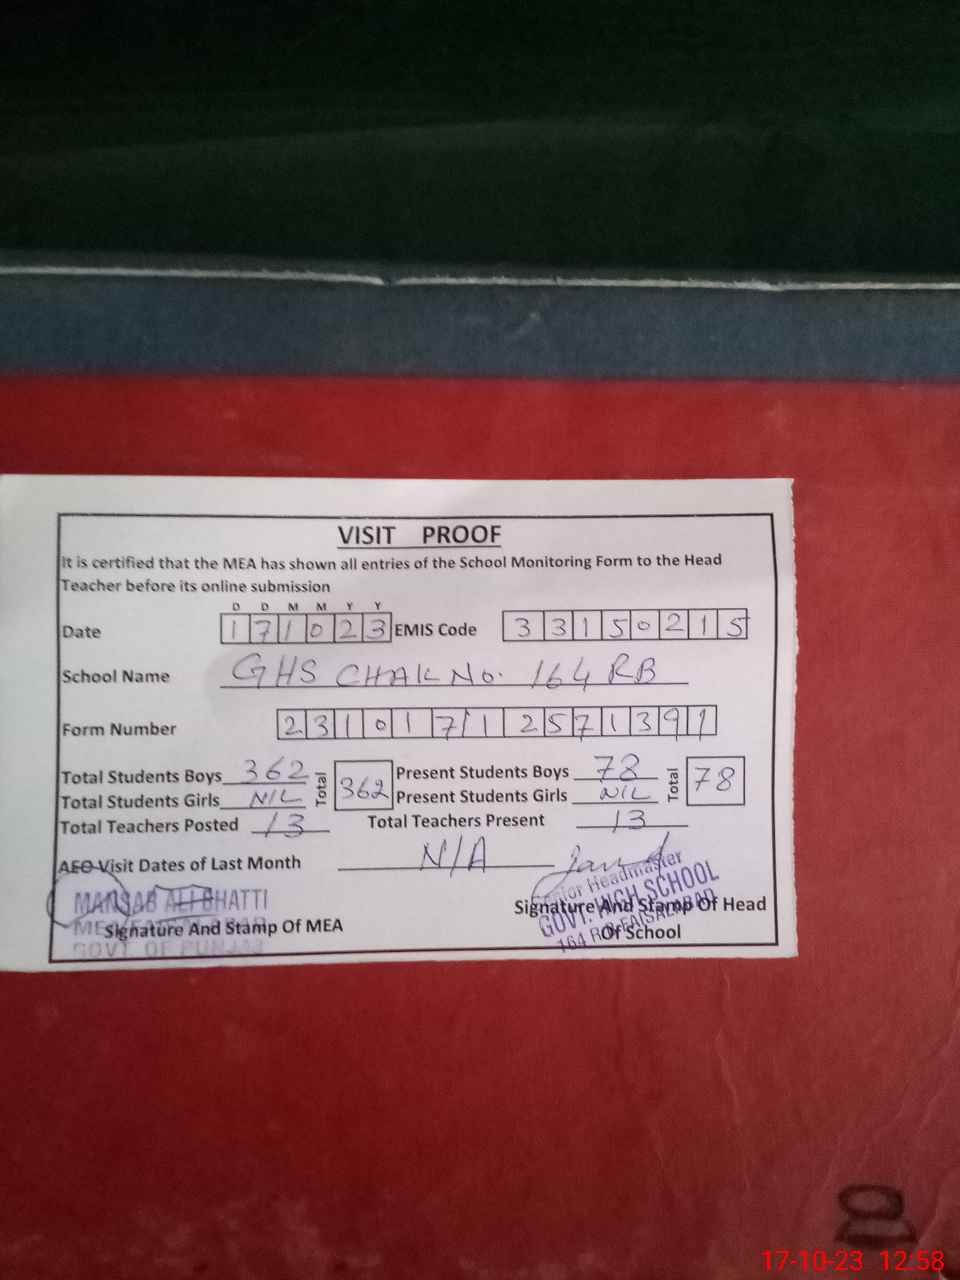 VISIT PROOF
It is certified that the MEA has shown all entries of the School Monitoring Form to the Head
Teacher before its online submission
D D M M Y Y
Date 171023 EMIS Code 33150215
School Name GHS CHAK No. 164 RB
Form Number 23101712571391
Total Students Boys 362 Total 362 Present Students Boys 78 Total 78
Total Students Girls NIL Present Students Girls NIL
Total Teachers Posted 13 Total Teachers Present 13
AEO Visit Dates of Last Month N/A
MANSAB ALI BHATTI
Senior Headmaster
GOVT. HIGH SCHOOL
164 R.B FAISALABAD
Signature And Stamp Of MEA
GOVT. OF PUNJAB
Signature And Stamp Of Head
Of School
17-10-23 12:58